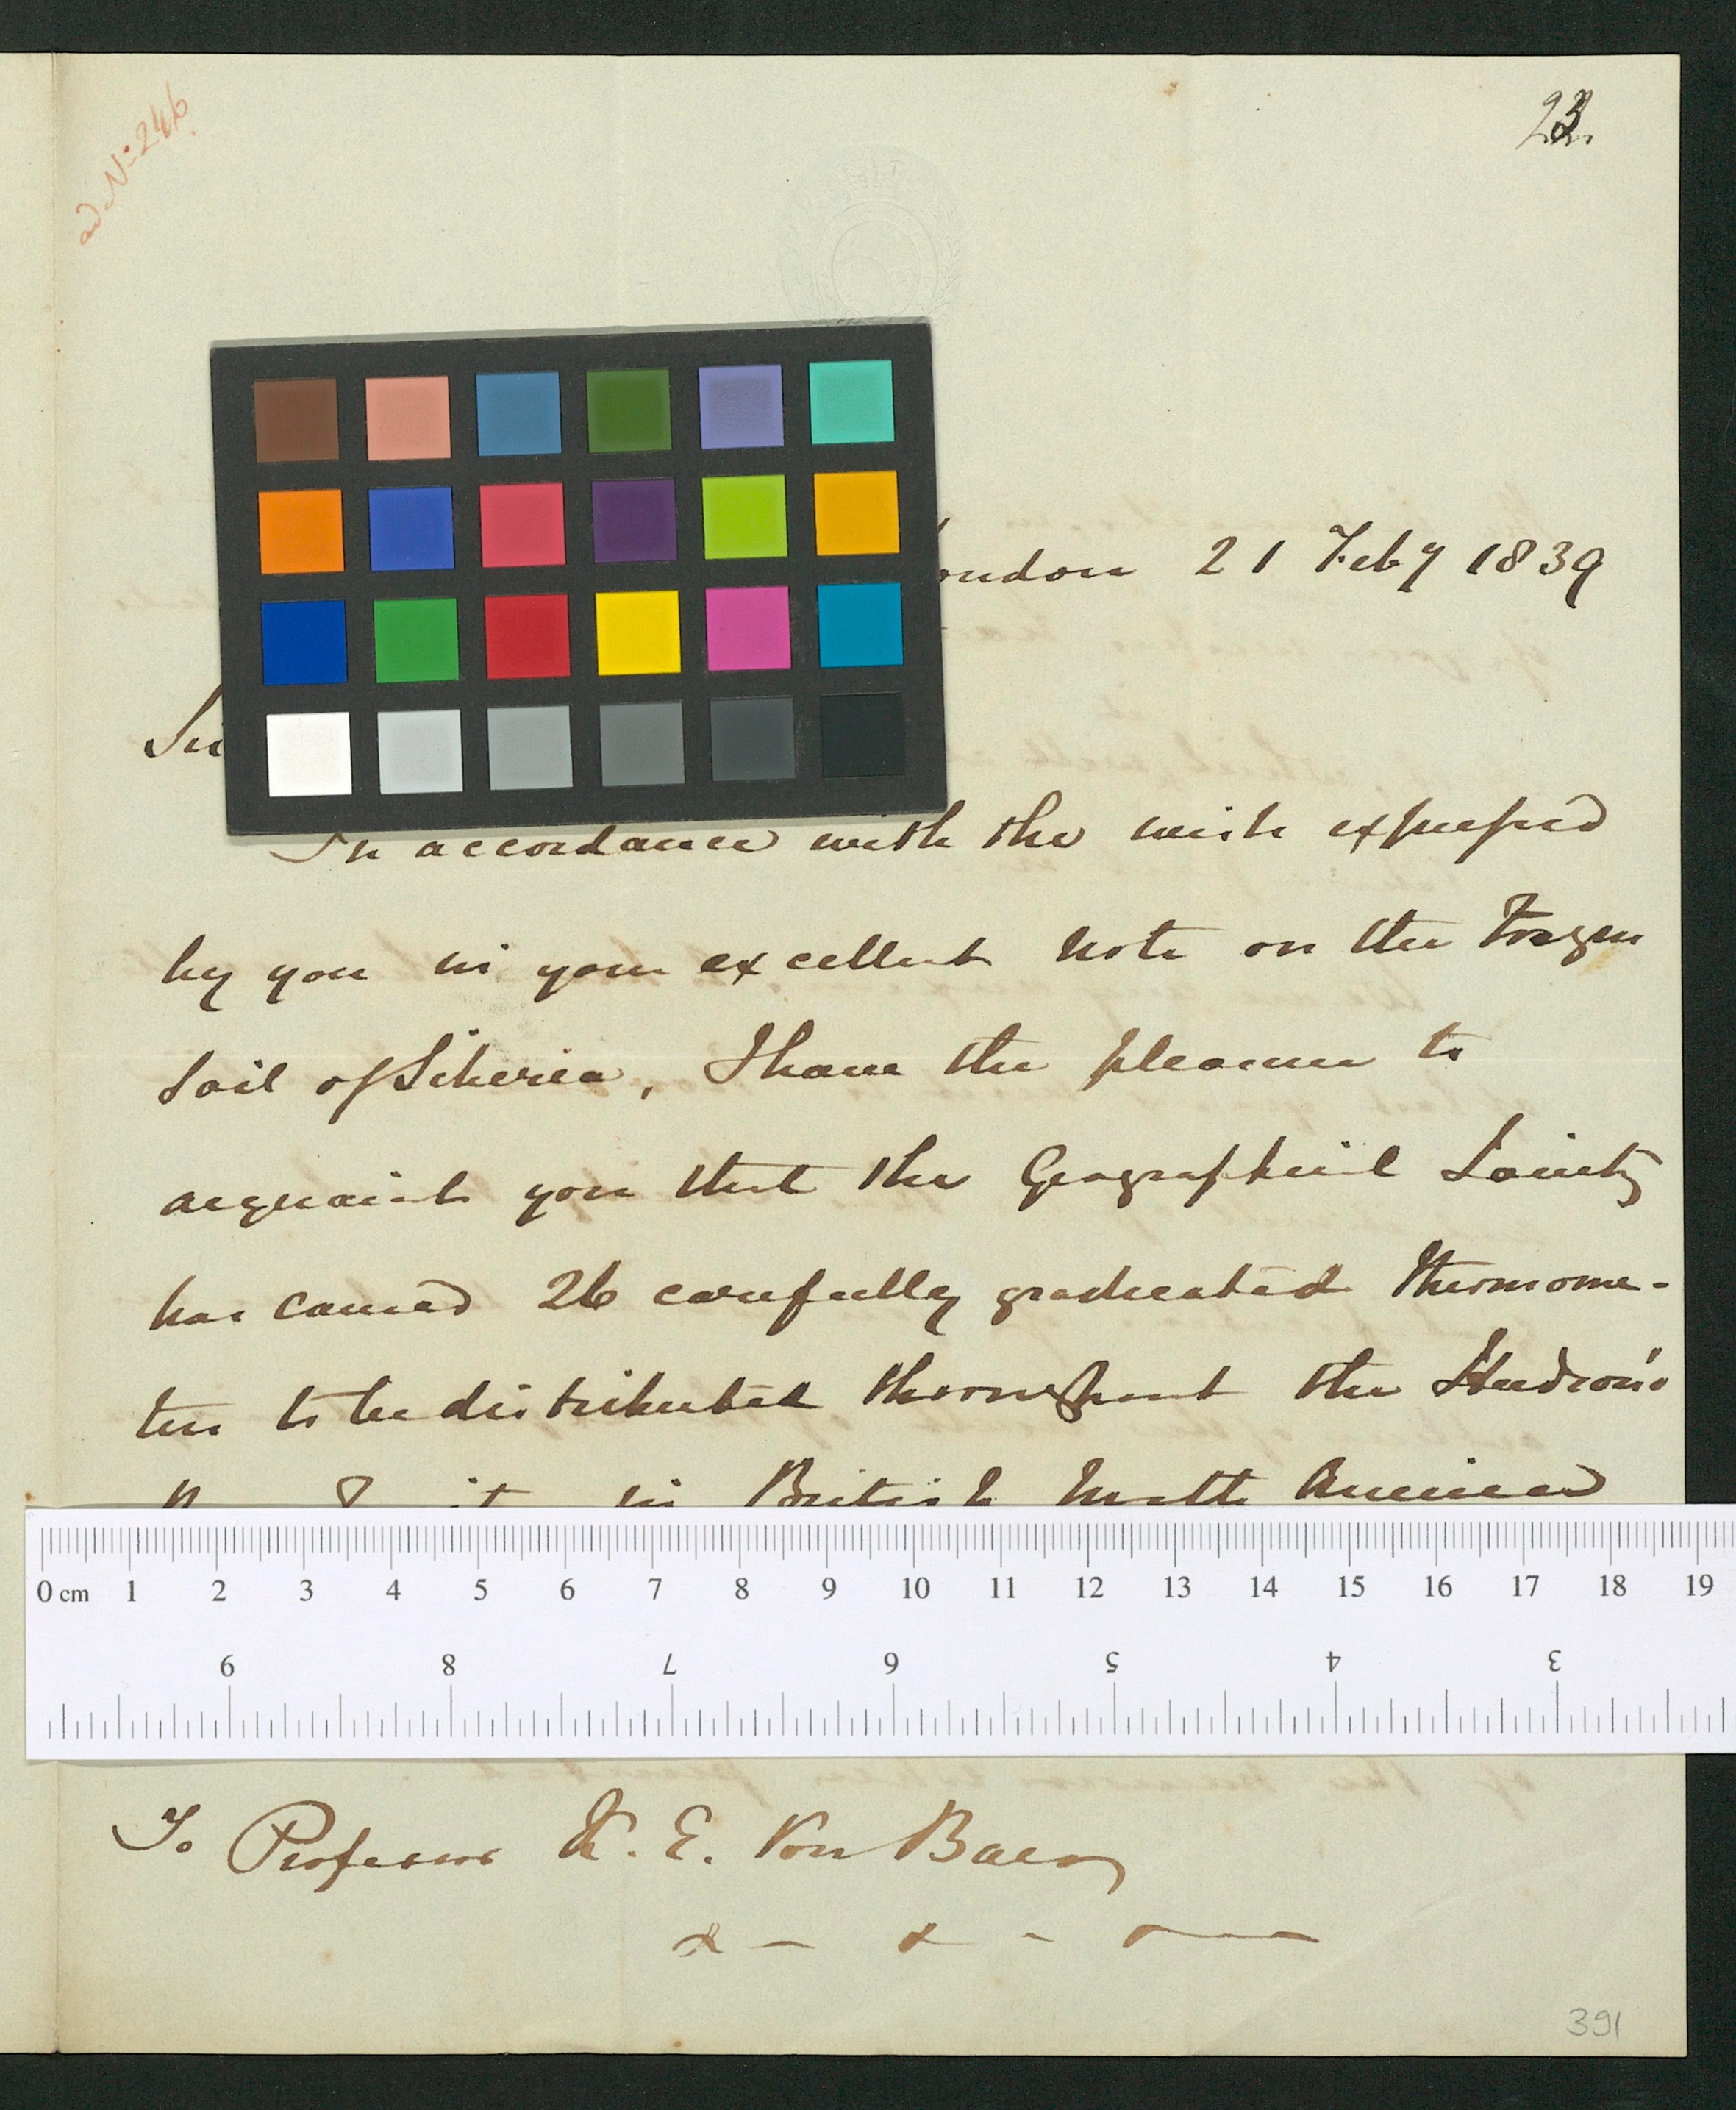 ad N: 246.
23.
London 21 Feby 1839
Sir
In accordance with the wish expressed
by you in your excellent note on the Frozen
Soil of Siberia, I have the pleasure to
acquaint you that the Geographical Society
has caused 26 carefully graduated Thermome-
ters to be distributed throughout the Hudson's
in British North America
0 cm 1 2 3 4 5 6 7 8 9 10 11 12 13 14 15 16 17 18 19
9 8 7 6 5 4 3
To Professor K. E. Von Baer
391